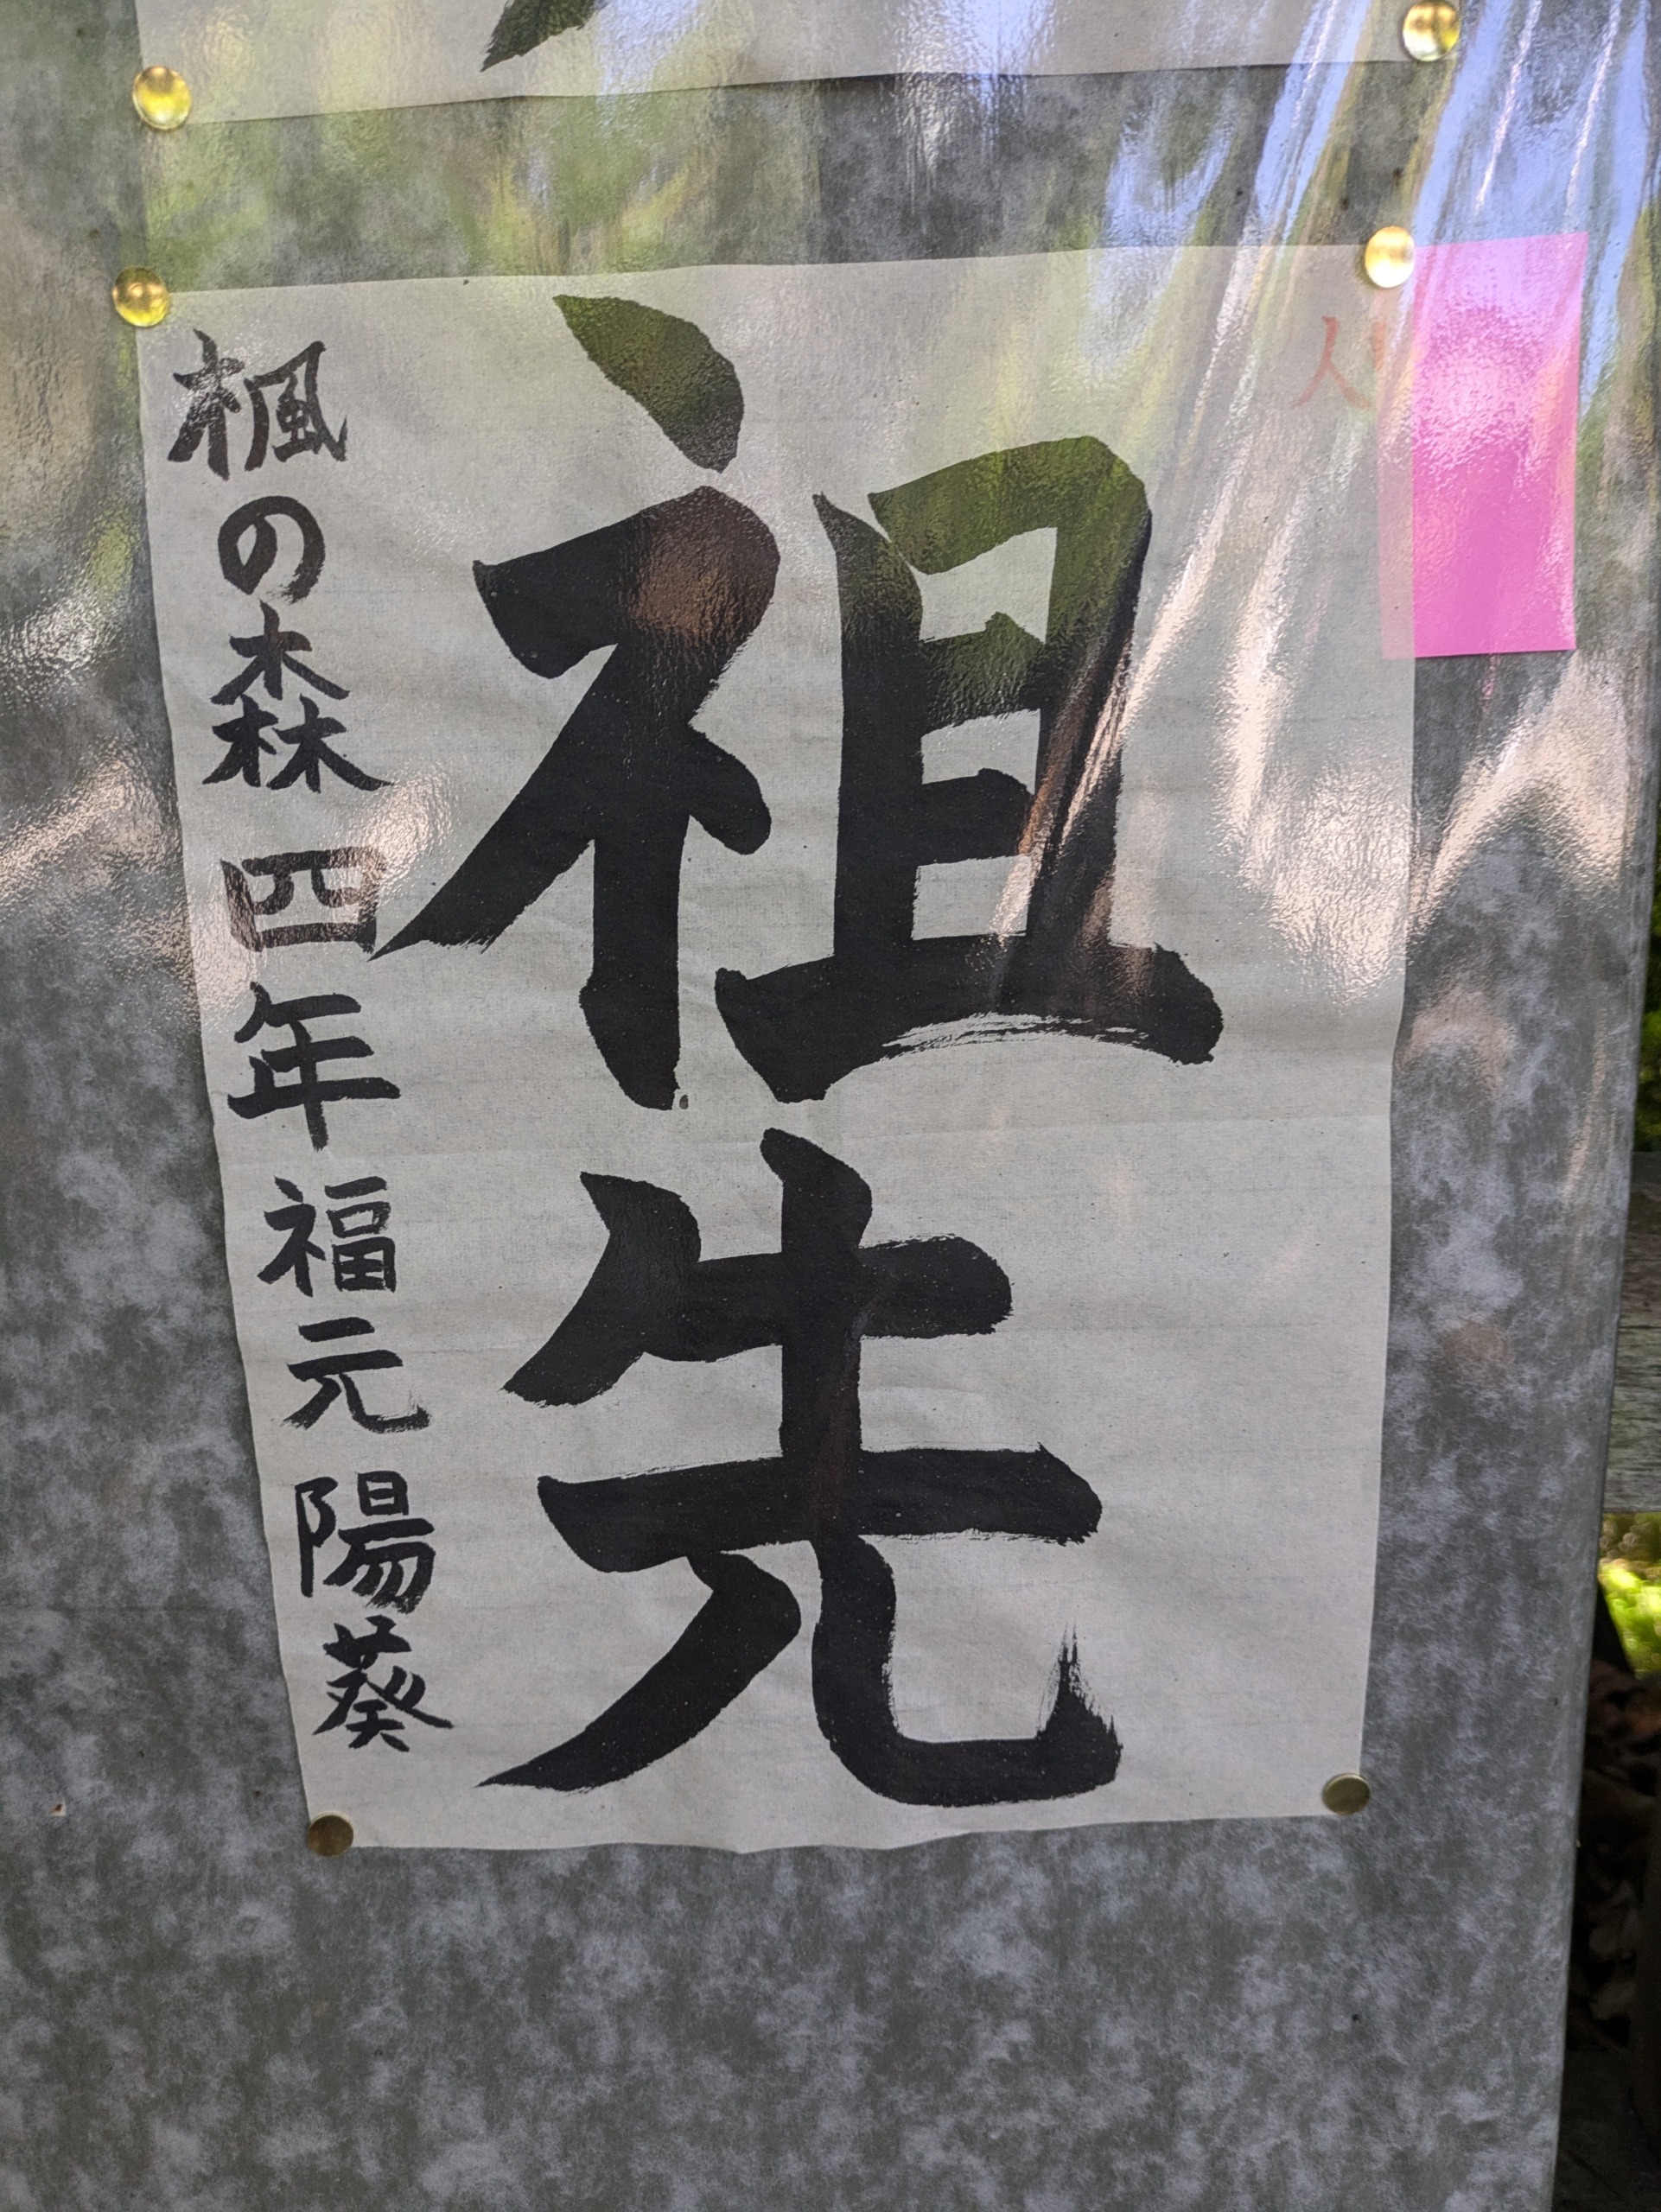 祖先
楓の森 四年 福元 陽葵